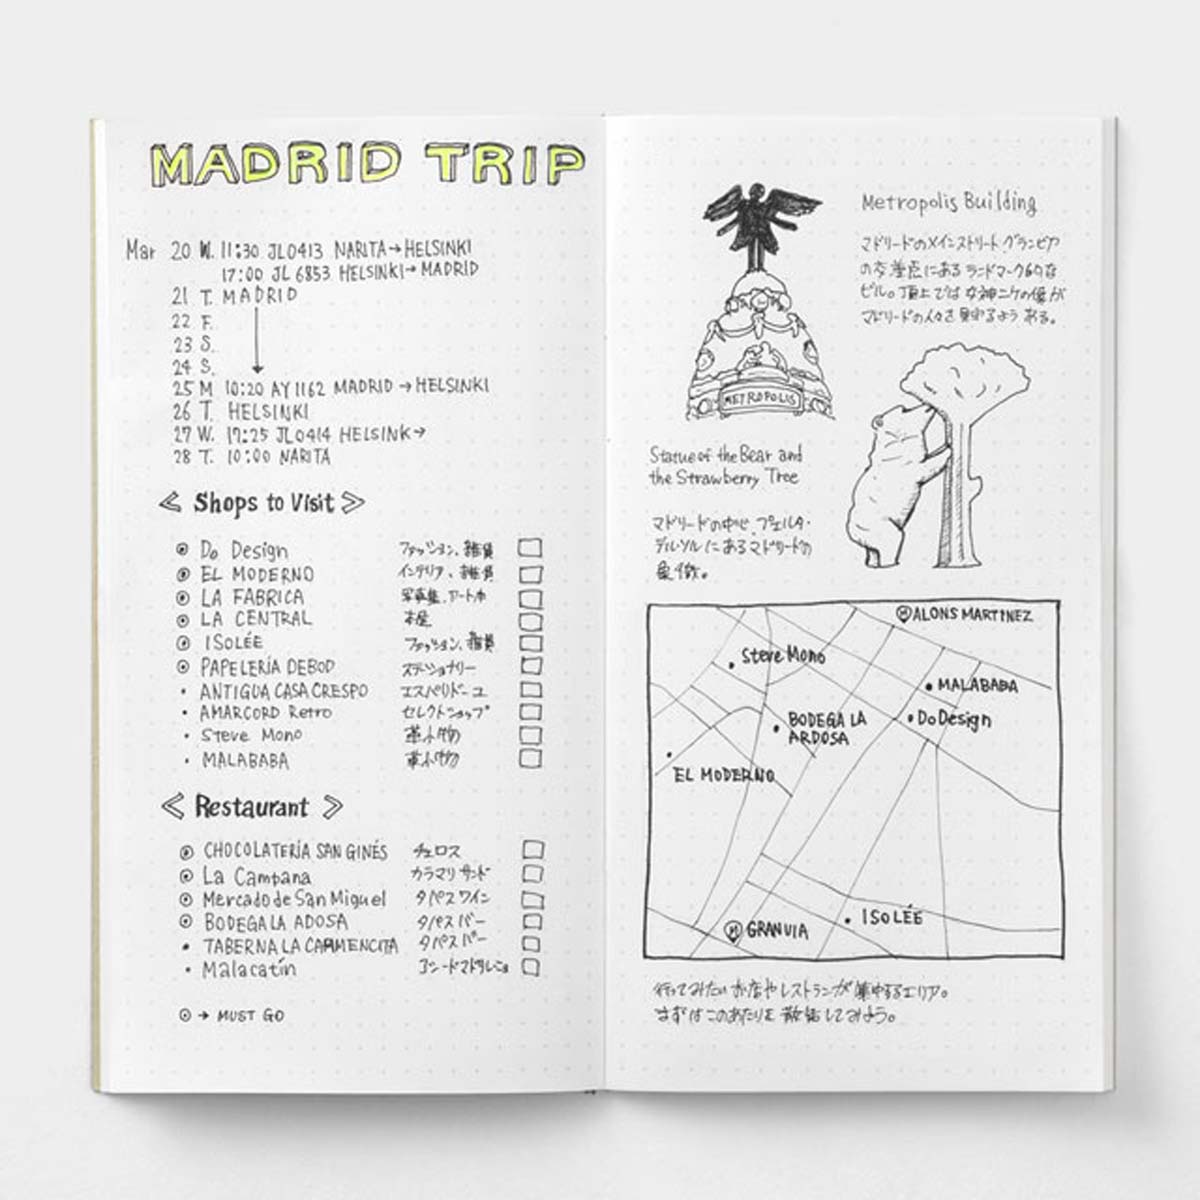 MADRID TRIP
Mar 20 W. 11:30 JL0413 NARITA→HELSINKI
17:00 JL 6853 HELSINKI→MADRID
21 T. MADRID
22 F.
23 S.
24 S.
25 M 10:20 AY1162 MADRID→HELSINKI
26 T. HELSINKI
27 W. 17:25 JL0414 HELSINK→
28 T. 10:00 NARITA
≪ Shops to Visit ≫
Do Design ファッション、雑貨
EL MODERNO インテリア、雑貨
LA FABRICA 写真集、アート本
LA CENTRAL 本屋
ISOLÉE ファッション、雑貨
PAPELERÍA DEBOD ステーショナリー
ANTIGUA CASA CRESPO エスパドリーユ
AMARCORD Retro セレクトショップ
Steve Mono 革小物
MALABABA 革小物
≪ Restaurant ≫
CHOCOLATERÍA SAN GINÉS チュロス
La Campana カラマリサンド
Mercado de San Miguel タパス ワイン
BODEGA LA ADOSA タパス バー
TABERNA LA CARMENCITA タパス バー
Malacatín
⊙ → MUST GO
Metropolis Building
マドリードのメインストリート グランビア
の交差点にあるランドマーク的な
ビル。頂上では女神ニケの像が
マドリードの人々を見守るようある。
METROPOLIS
Statue of the Bear and
the Strawberry Tree
マドリードの中心、プエルタ・
デルソルにあるマドリードの
象徴。
M ALONS MARTINEZ
Steve Mono
MALABABA
BODEGA LA
ARDOSA
Do Design
EL MODERNO
ISOLÉE
M GRANVIA
行ってみたいお店やレストランが集中するエリア。
まずはこのあたりを散策してみよう。